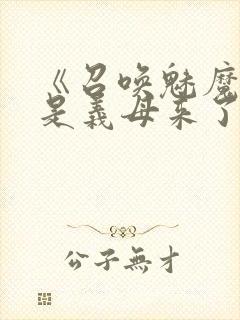 《召唤魅魔
是義母来了
公子無才